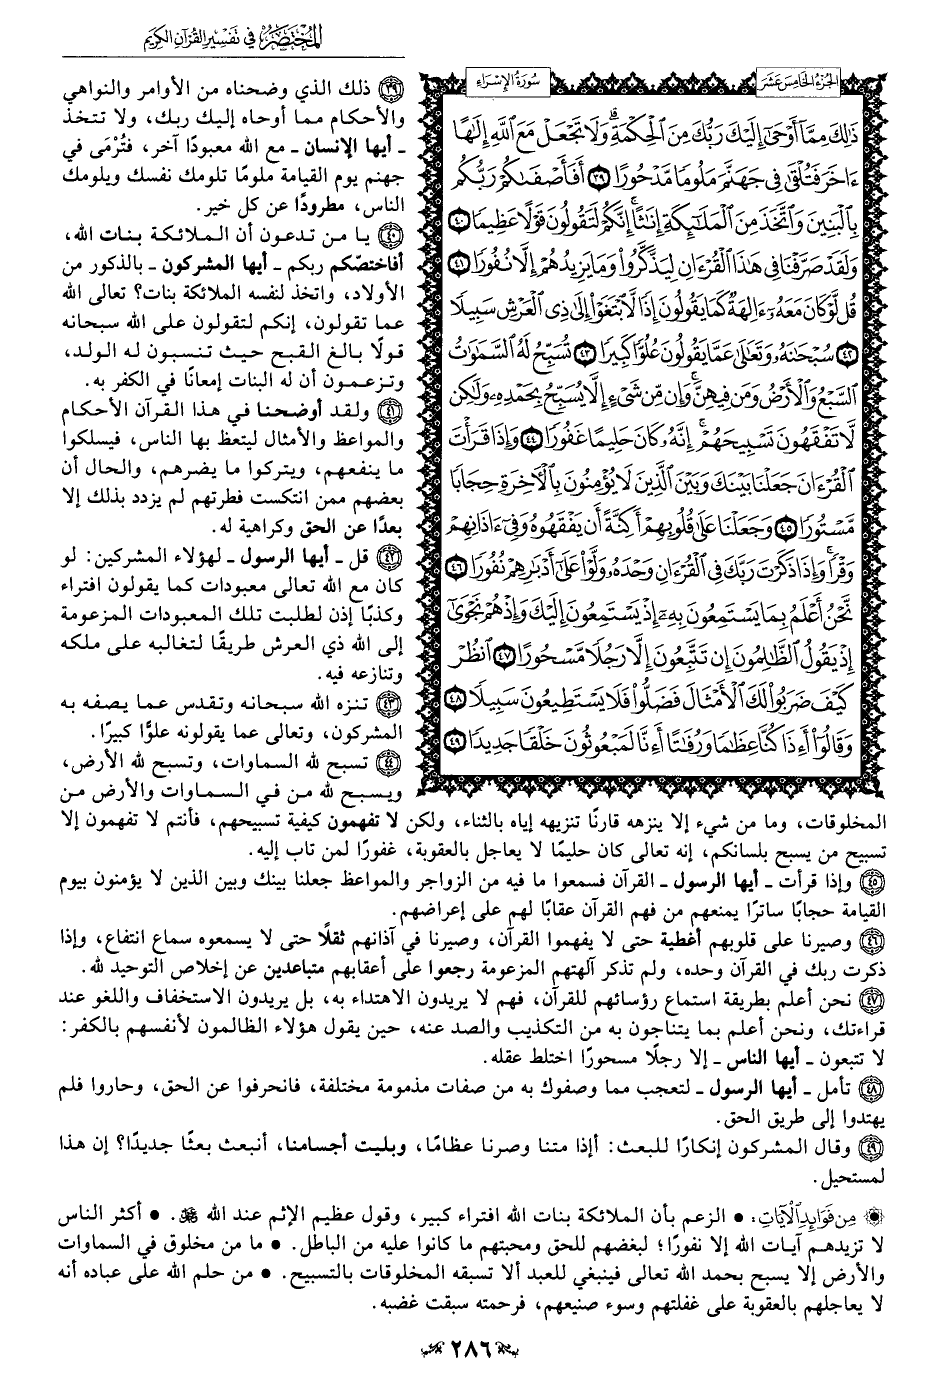 المختصر في تفسير القرآن الكريم
الجزء الخامس عشر
سورة الإسراء
ذَٰلِكَ مِمَّآ أَوْحَىٰٓ إِلَيْكَ رَبُّكَ مِنَ ٱلْحِكْمَةِۗ وَلَا تَجْعَلْ مَعَ ٱللَّهِ إِلَٰهًا
ءَاخَرَ فَتُلْقَىٰ فِى جَهَنَّمَ مَلُومًا مَّدْحُورًا ٣٩ أَفَأَصْفَىٰكُمْ رَبُّكُم
بِٱلْبَنِينَ وَٱتَّخَذَ مِنَ ٱلْمَلَٰٓئِكَةِ إِنَٰثًاۚ إِنَّكُمْ لَتَقُولُونَ قَوْلًا عَظِيمًا ٤٠
وَلَقَدْ صَرَّفْنَا فِى هَٰذَا ٱلْقُرْءَانِ لِيَذَّكَّرُوا۟ وَمَا يَزِيدُهُمْ إِلَّا نُفُورًا ٤١
قُل لَّوْ كَانَ مَعَهُۥٓ ءَالِهَةٌ كَمَا يَقُولُونَ إِذًا لَّٱبْتَغَوْا۟ إِلَىٰ ذِى ٱلْعَرْشِ سَبِيلًا
٤٢ سُبْحَٰنَهُۥ وَتَعَٰلَىٰ عَمَّا يَقُولُونَ عُلُوًّا كَبِيرًا ٤٣ تُسَبِّحُ لَهُ ٱلسَّمَٰوَٰتُ
ٱلسَّبْعُ وَٱلْأَرْضُ وَمَن فِيهِنَّۚ وَإِن مِّن شَىْءٍ إِلَّا يُسَبِّحُ بِحَمْدِهِۦ وَلَٰكِن
لَّا تَفْقَهُونَ تَسْبِيحَهُمْۗ إِنَّهُۥ كَانَ حَلِيمًا غَفُورًا ٤٤ وَإِذَا قَرَأْتَ
ٱلْقُرْءَانَ جَعَلْنَا بَيْنَكَ وَبَيْنَ ٱلَّذِينَ لَا يُؤْمِنُونَ بِٱلْءَاخِرَةِ حِجَابًا
مَّسْتُورًا ٤٥ وَجَعَلْنَا عَلَىٰ قُلُوبِهِمْ أَكِنَّةً أَن يَفْقَهُوهُ وَفِىٓ ءَاذَانِهِمْ
وَقْرًاۚ وَإِذَا ذَكَرْتَ رَبَّكَ فِى ٱلْقُرْءَانِ وَحْدَهُۥ وَلَّوْا۟ عَلَىٰٓ أَدْبَٰرِهِمْ نُفُورًا ٤٦
نَّحْنُ أَعْلَمُ بِمَا يَسْتَمِعُونَ بِهِۦٓ إِذْ يَسْتَمِعُونَ إِلَيْكَ وَإِذْ هُمْ نَجْوَىٰٓ
إِذْ يَقُولُ ٱلظَّٰلِمُونَ إِن تَتَّبِعُونَ إِلَّا رَجُلًا مَّسْحُورًا ٤٧ ٱنظُرْ
كَيْفَ ضَرَبُوا۟ لَكَ ٱلْأَمْثَالَ فَضَلُّوا۟ فَلَا يَسْتَطِيعُونَ سَبِيلًا ٤٨
وَقَالُوٓا۟ أَءِذَا كُنَّا عِظَٰمًا وَرُفَٰتًا أَءِنَّا لَمَبْعُوثُونَ خَلْقًا جَدِيدًا ٤٩
٣٩ ذلك الذي وضحناه من الأوامر والنواهي
والأحكام مما أوحاه إليك ربك، ولا تتخذ
ـ أيها الإنسان ـ مع الله معبودًا آخر، فتُرْمَى في
جهنم يوم القيامة ملومًا تلومك نفسك ويلومك
الناس، مطرودًا عن كل خير.
٤٠ يا من تدعون أن الملائكة بنات الله،
أفاختصّكم ربكم ـ أيها المشركون ـ بالذكور من
الأولاد، واتخذ لنفسه الملائكة بنات؟ تعالى الله
عما تقولون، إنكم لتقولون على الله سبحانه
قولًا بالغ القبح حيث تنسبون له الولد،
وتزعمون أن له البنات إمعانًا في الكفر به.
٤١ ولقد أوضحنا في هذا القرآن الأحكام
والمواعظ والأمثال ليتعظ بها الناس، فيسلكوا
ما ينفعهم، ويتركوا ما يضرهم، والحال أن
بعضهم ممن انتكست فطرتهم لم يزدد بذلك إلا
بعدًا عن الحق وكراهية له.
٤٢ قل ـ أيها الرسول ـ لهؤلاء المشركين: لو
كان مع الله تعالى معبودات كما يقولون افتراء
وكذبًا إذن لطلبت تلك المعبودات المزعومة
إلى الله ذي العرش طريقًا لتغالبه على ملكه
وتنازعه فيه.
٤٣ تنزه الله سبحانه وتقدس عما يصفه به
المشركون، وتعالى عما يقولونه علوًّا كبيرًا.
٤٤ تسبح لله السماوات، وتسبح لله الأرض،
ويسبح لله من في السماوات والأرض من
المخلوقات، وما من شيء إلا ينزهه قارنًا تنزيهه إياه بالثناء، ولكن لا تفهمون كيفية تسبيحهم، فأنتم لا تفهمون إلا
تسبيح من يسبح بلسانكم، إنه تعالى كان حليمًا لا يعاجل بالعقوبة، غفورًا لمن تاب إليه.
٤٥ وإذا قرأت ـ أيها الرسول ـ القرآن فسمعوا ما فيه من الزواجر والمواعظ جعلنا بينك وبين الذين لا يؤمنون بيوم
القيامة حجابًا ساترًا يمنعهم من فهم القرآن عقابًا لهم على إعراضهم.
٤٦ وصيرنا على قلوبهم أغطية حتى لا يفهموا القرآن، وصيرنا في آذانهم ثقلًا حتى لا يسمعوه سماع انتفاع، وإذا
ذكرت ربك في القرآن وحده، ولم تذكر آلهتهم المزعومة رجعوا على أعقابهم متباعدين عن إخلاص التوحيد لله.
٤٧ نحن أعلم بطريقة استماع رؤسائهم للقرآن، فهم لا يريدون الاهتداء به، بل يريدون الاستخفاف واللغو عند
قراءتك، ونحن أعلم بما يتناجون به من التكذيب والصد عنه، حين يقول هؤلاء الظالمون لأنفسهم بالكفر:
لا تتبعون ـ أيها الناس ـ إلا رجلًا مسحورًا اختلط عقله.
٤٨ تأمل ـ أيها الرسول ـ لتعجب مما وصفوك به من صفات مذمومة مختلفة، فانحرفوا عن الحق، وحاروا فلم
يهتدوا إلى طريق الحق.
٤٩ وقال المشركون إنكارًا للبعث: أإذا متنا وصرنا عظامًا، وبليت أجسامنا، أنبعث بعثًا جديدًا؟ إن هذا
لمستحيل.
من فوائد الآيات: • الزعم بأن الملائكة بنات الله افتراء كبير، وقول عظيم الإثم عند الله ﷻ. • أكثر الناس
لا تزيدهم آيات الله إلا نفورًا؛ لبغضهم للحق ومحبتهم ما كانوا عليه من الباطل. • ما من مخلوق في السماوات
والأرض إلا يسبح بحمد الله تعالى فينبغي للعبد ألا تسبقه المخلوقات بالتسبيح. • من حلم الله على عباده أنه
لا يعاجلهم بالعقوبة على غفلتهم وسوء صنيعهم، فرحمته سبقت غضبه.
٢٨٦